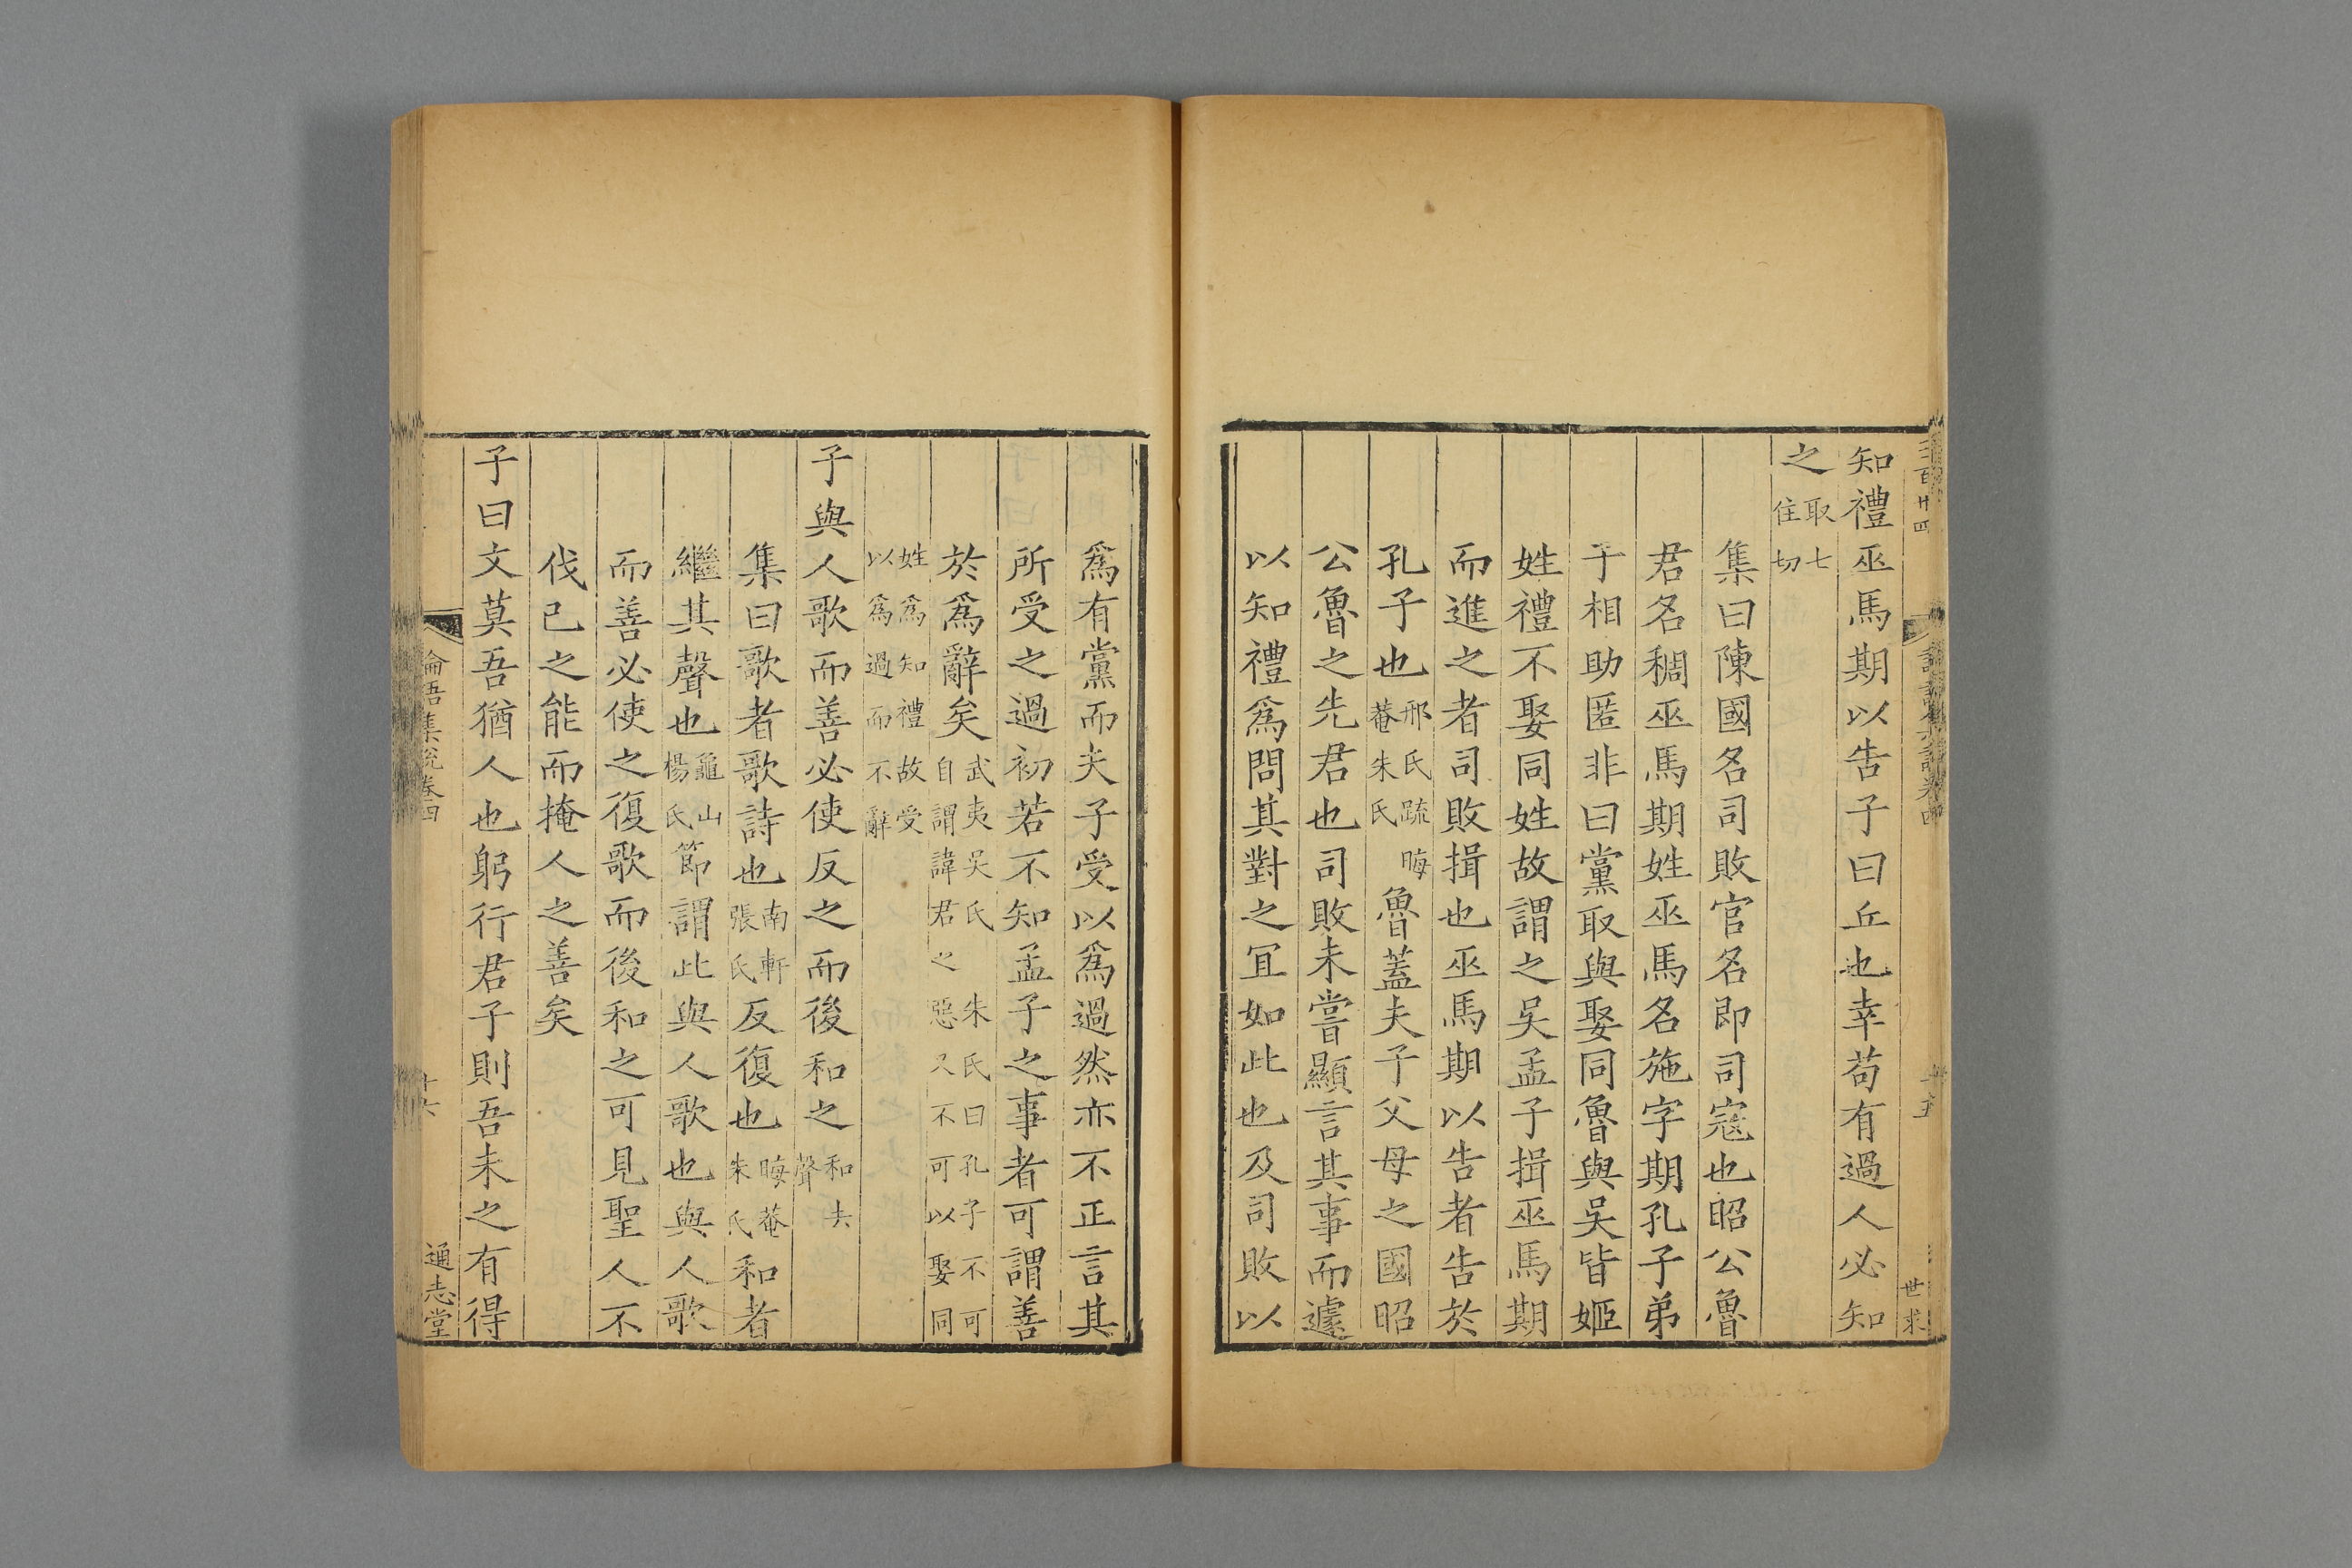 知禮巫馬期以告子曰丘也幸苟有過人必知
之取七住切
集曰陳國名司敗官名即司寇也昭公魯
君名稠巫馬期姓巫馬名施字期孔子弟
子相助匿非曰黨取與娶同魯與吳皆姬
姓禮不娶同姓故謂之吳孟子揖巫馬期
而進之者司敗揖也巫馬期以告者告於
孔子也邢氏疏晦菴朱氏魯蓋夫子父母之國昭
公魯之先君也司敗未嘗顯言其事而遽
以知禮爲問其對之宜如此也及司敗以
爲有黨而夫子受以爲過然亦不正言其
所受之過初若不知孟子之事者可謂善
於爲辭矣武夷吳氏朱氏曰孔子不可自謂諱君之惡又不可以娶同
姓爲知禮故受以爲過而不辭
子與人歌而善必使反之而後和之和去聲
集曰歌者歌詩也南軒張氏反復也晦菴朱氏和者
繼其聲也龜山楊氏節謂此與人歌也與人歌
而善必使之復歌而後和之可見聖人不
伐已之能而掩人之善矣
子曰文莫吾猶人也躬行君子則吾未之有得
論語集說卷四
十六
通志堂
世求